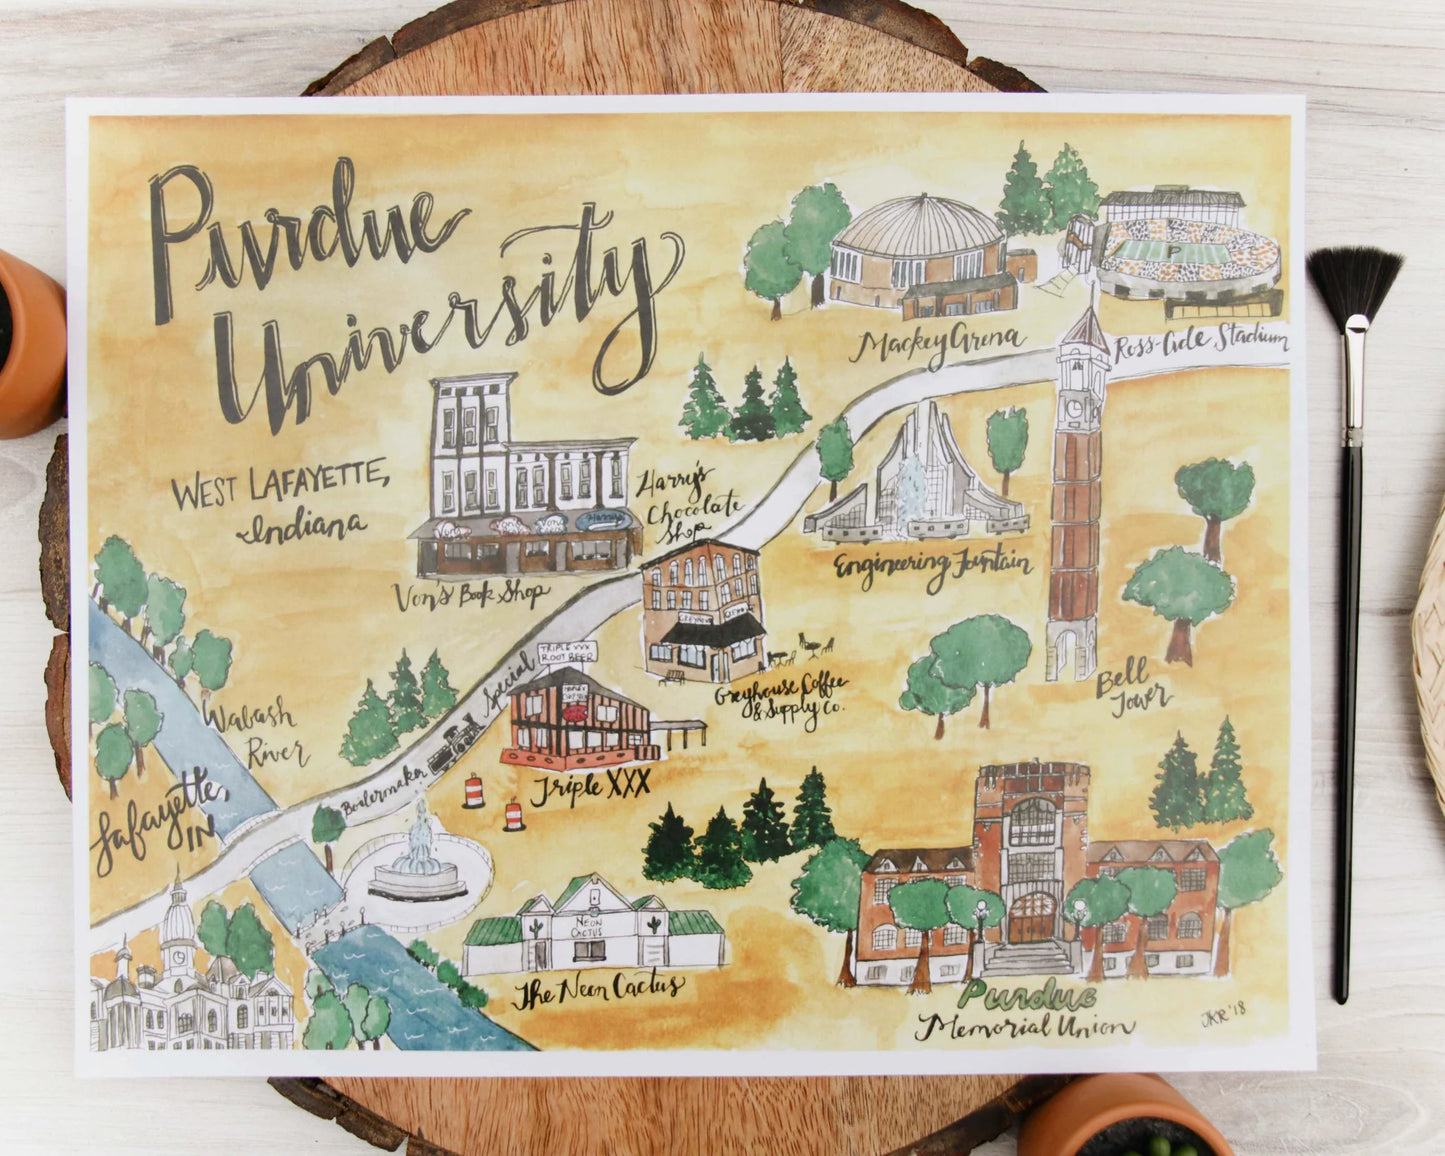 Purdue
University
West Lafayette,
Indiana
Mackey Arena
Ross-Ade Stadium
P
Harry's
Chocolate
Shop
Von's
Von's
Harry's
Von's Book Shop
Engineering Fountain
GREYHOUSE
Greyhouse Coffee
& Supply Co.
TRIPLE XXX
ROOT BEER
Triple XXX
Boilermaker Special
Bell
Tower
Wabash
River
Lafayette,
IN
NEON
CACTUS
The Neon Cactus
Purdue
Memorial Union
JKR '18